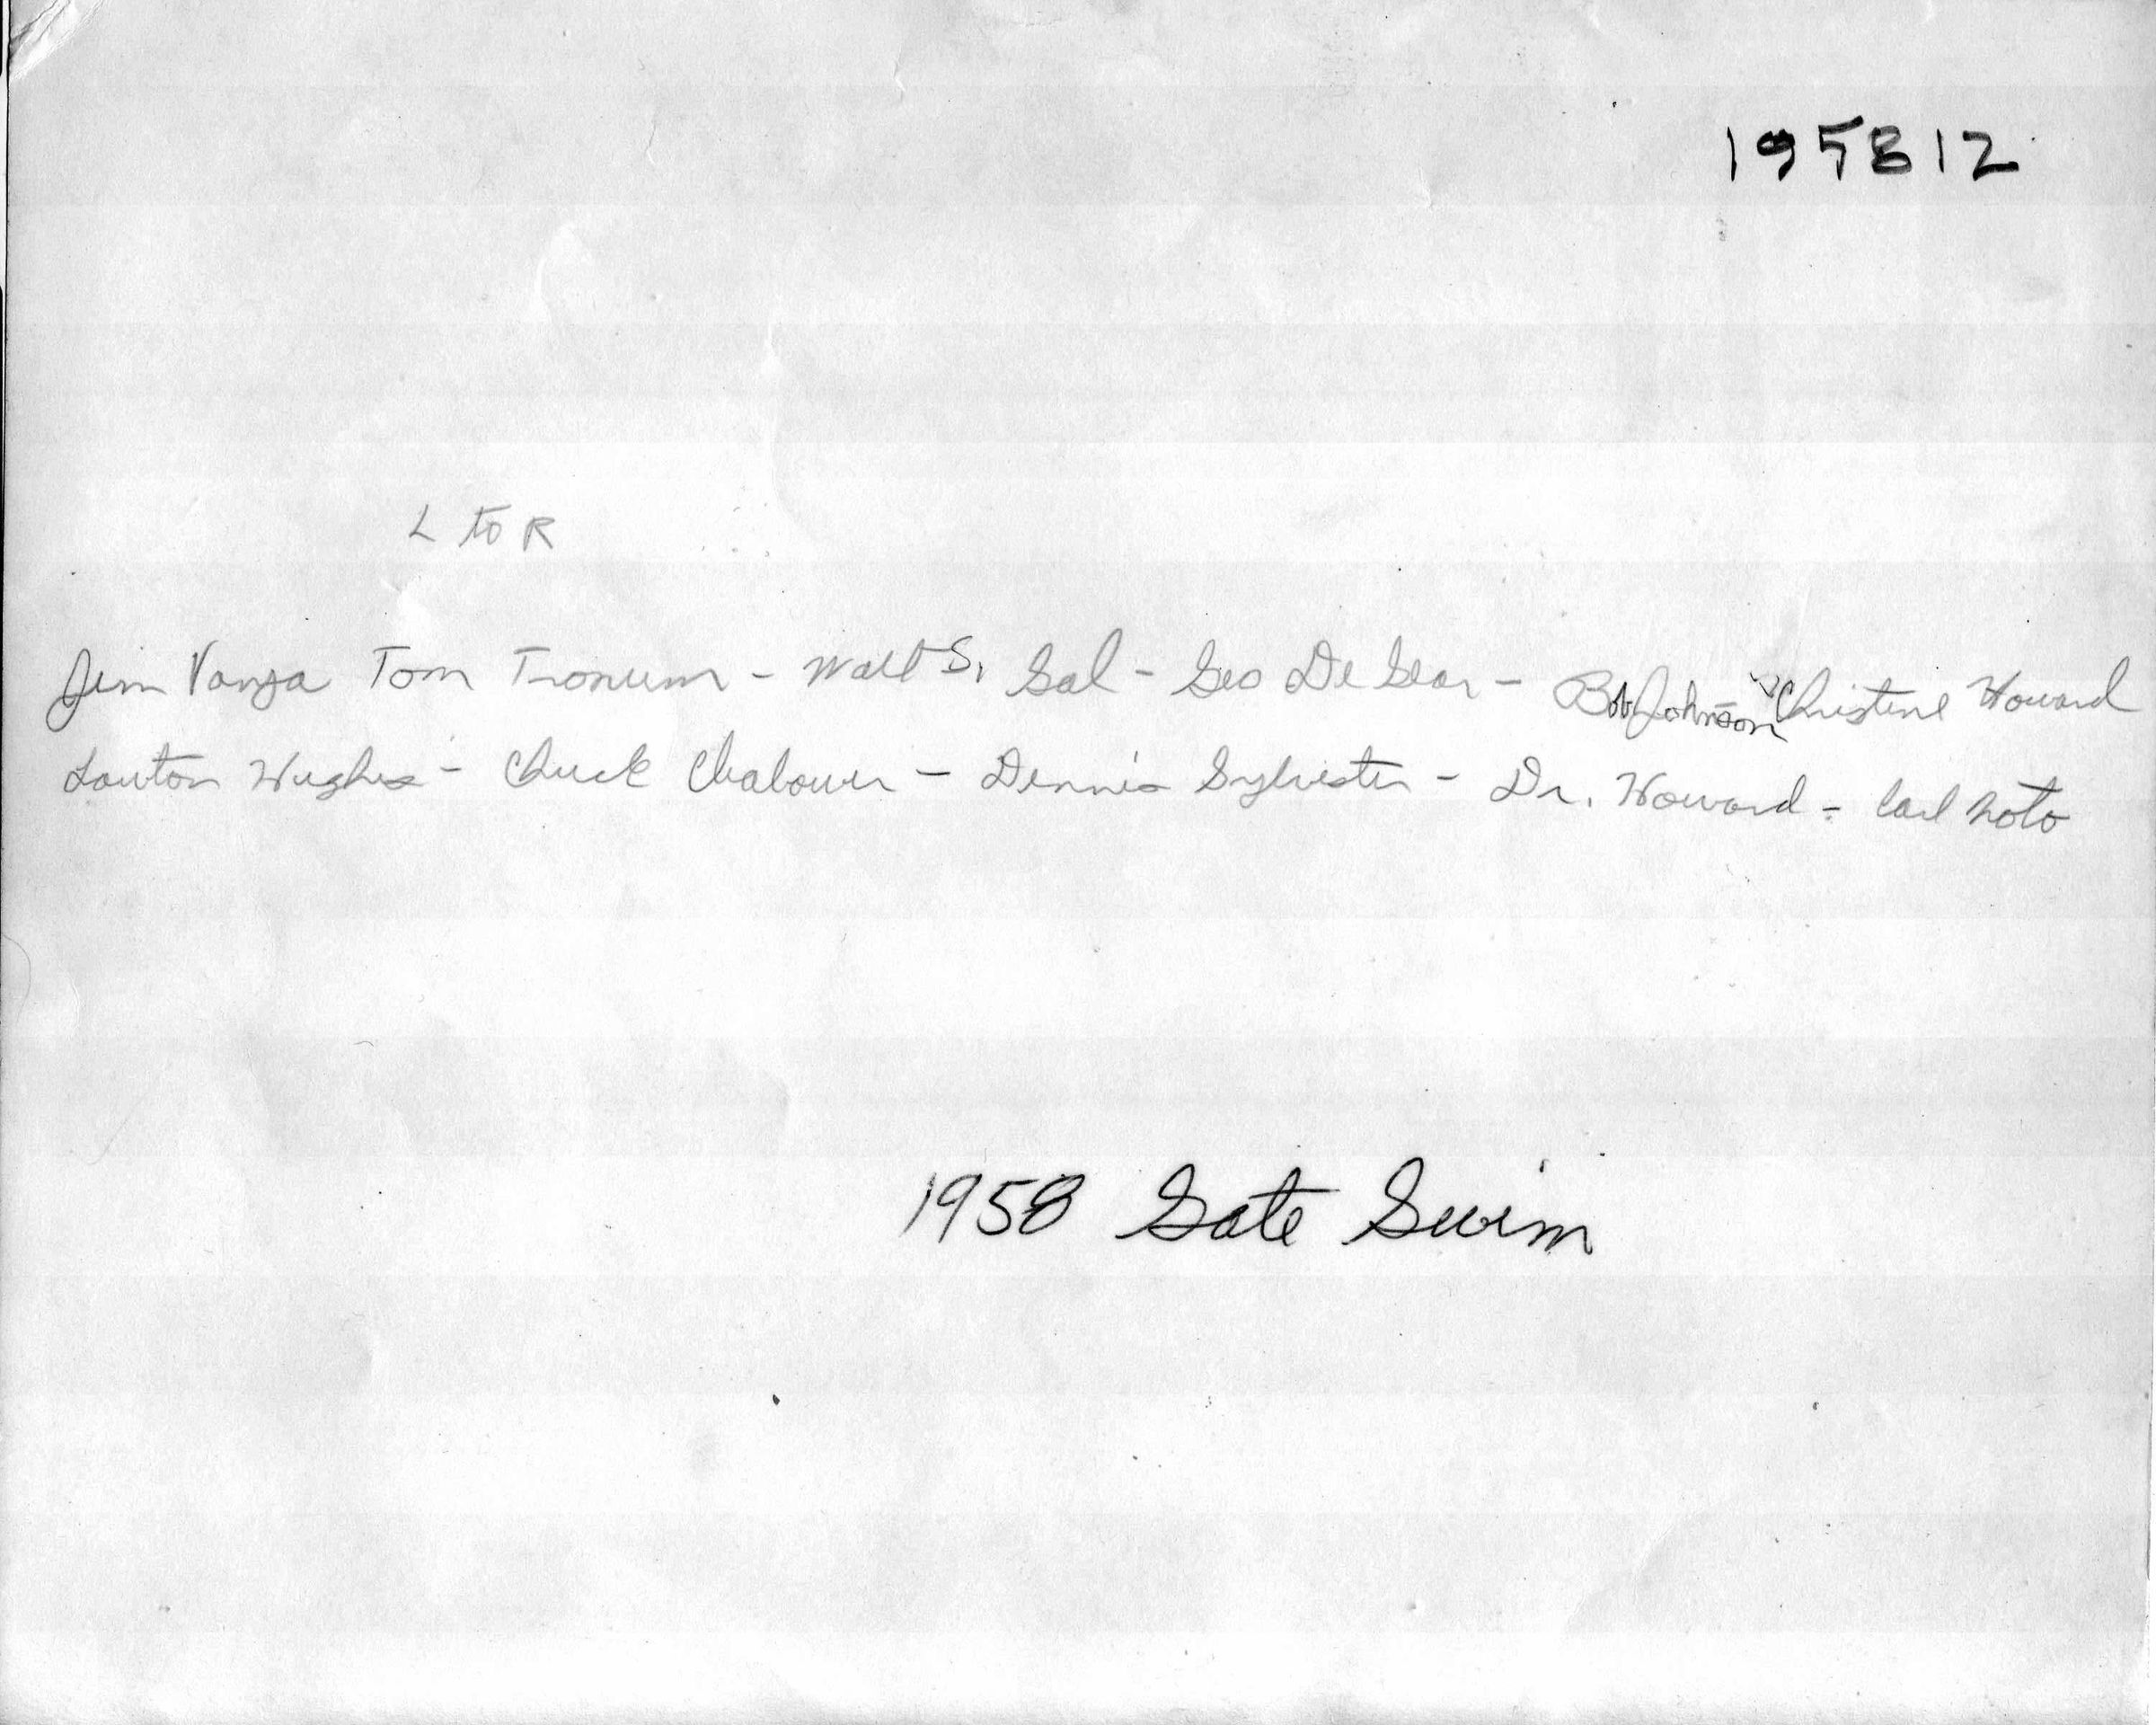 195812
L to R
Jim Vanza Tom Tronum - Walt S. Gal - Geo De Gear - Bob Johnson Christine Howard
Lawton Hughes - Chuck - Dennis Sylvester - Dr. Howard - Carl Noto
1958 Gate Swim